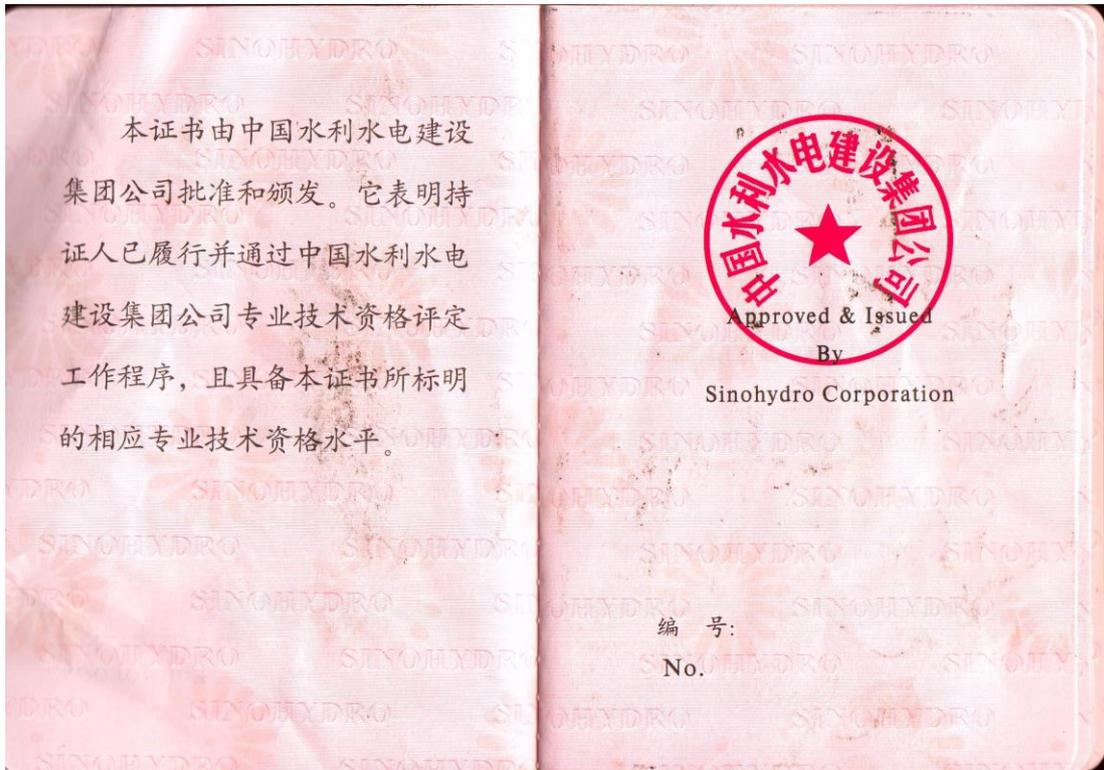 本证书由中国水利水电建设
集团公司批准和颁发。它表明持
证人已履行并通过中国水利水电
建设集团公司专业技术资格评定
工作程序，且具备本证书所标明
的相应专业技术资格水平。
中国水利水电建设集团公司
Approved & Issued
By
Sinohydro Corporation
编 号:
No.
SINOHYDRO